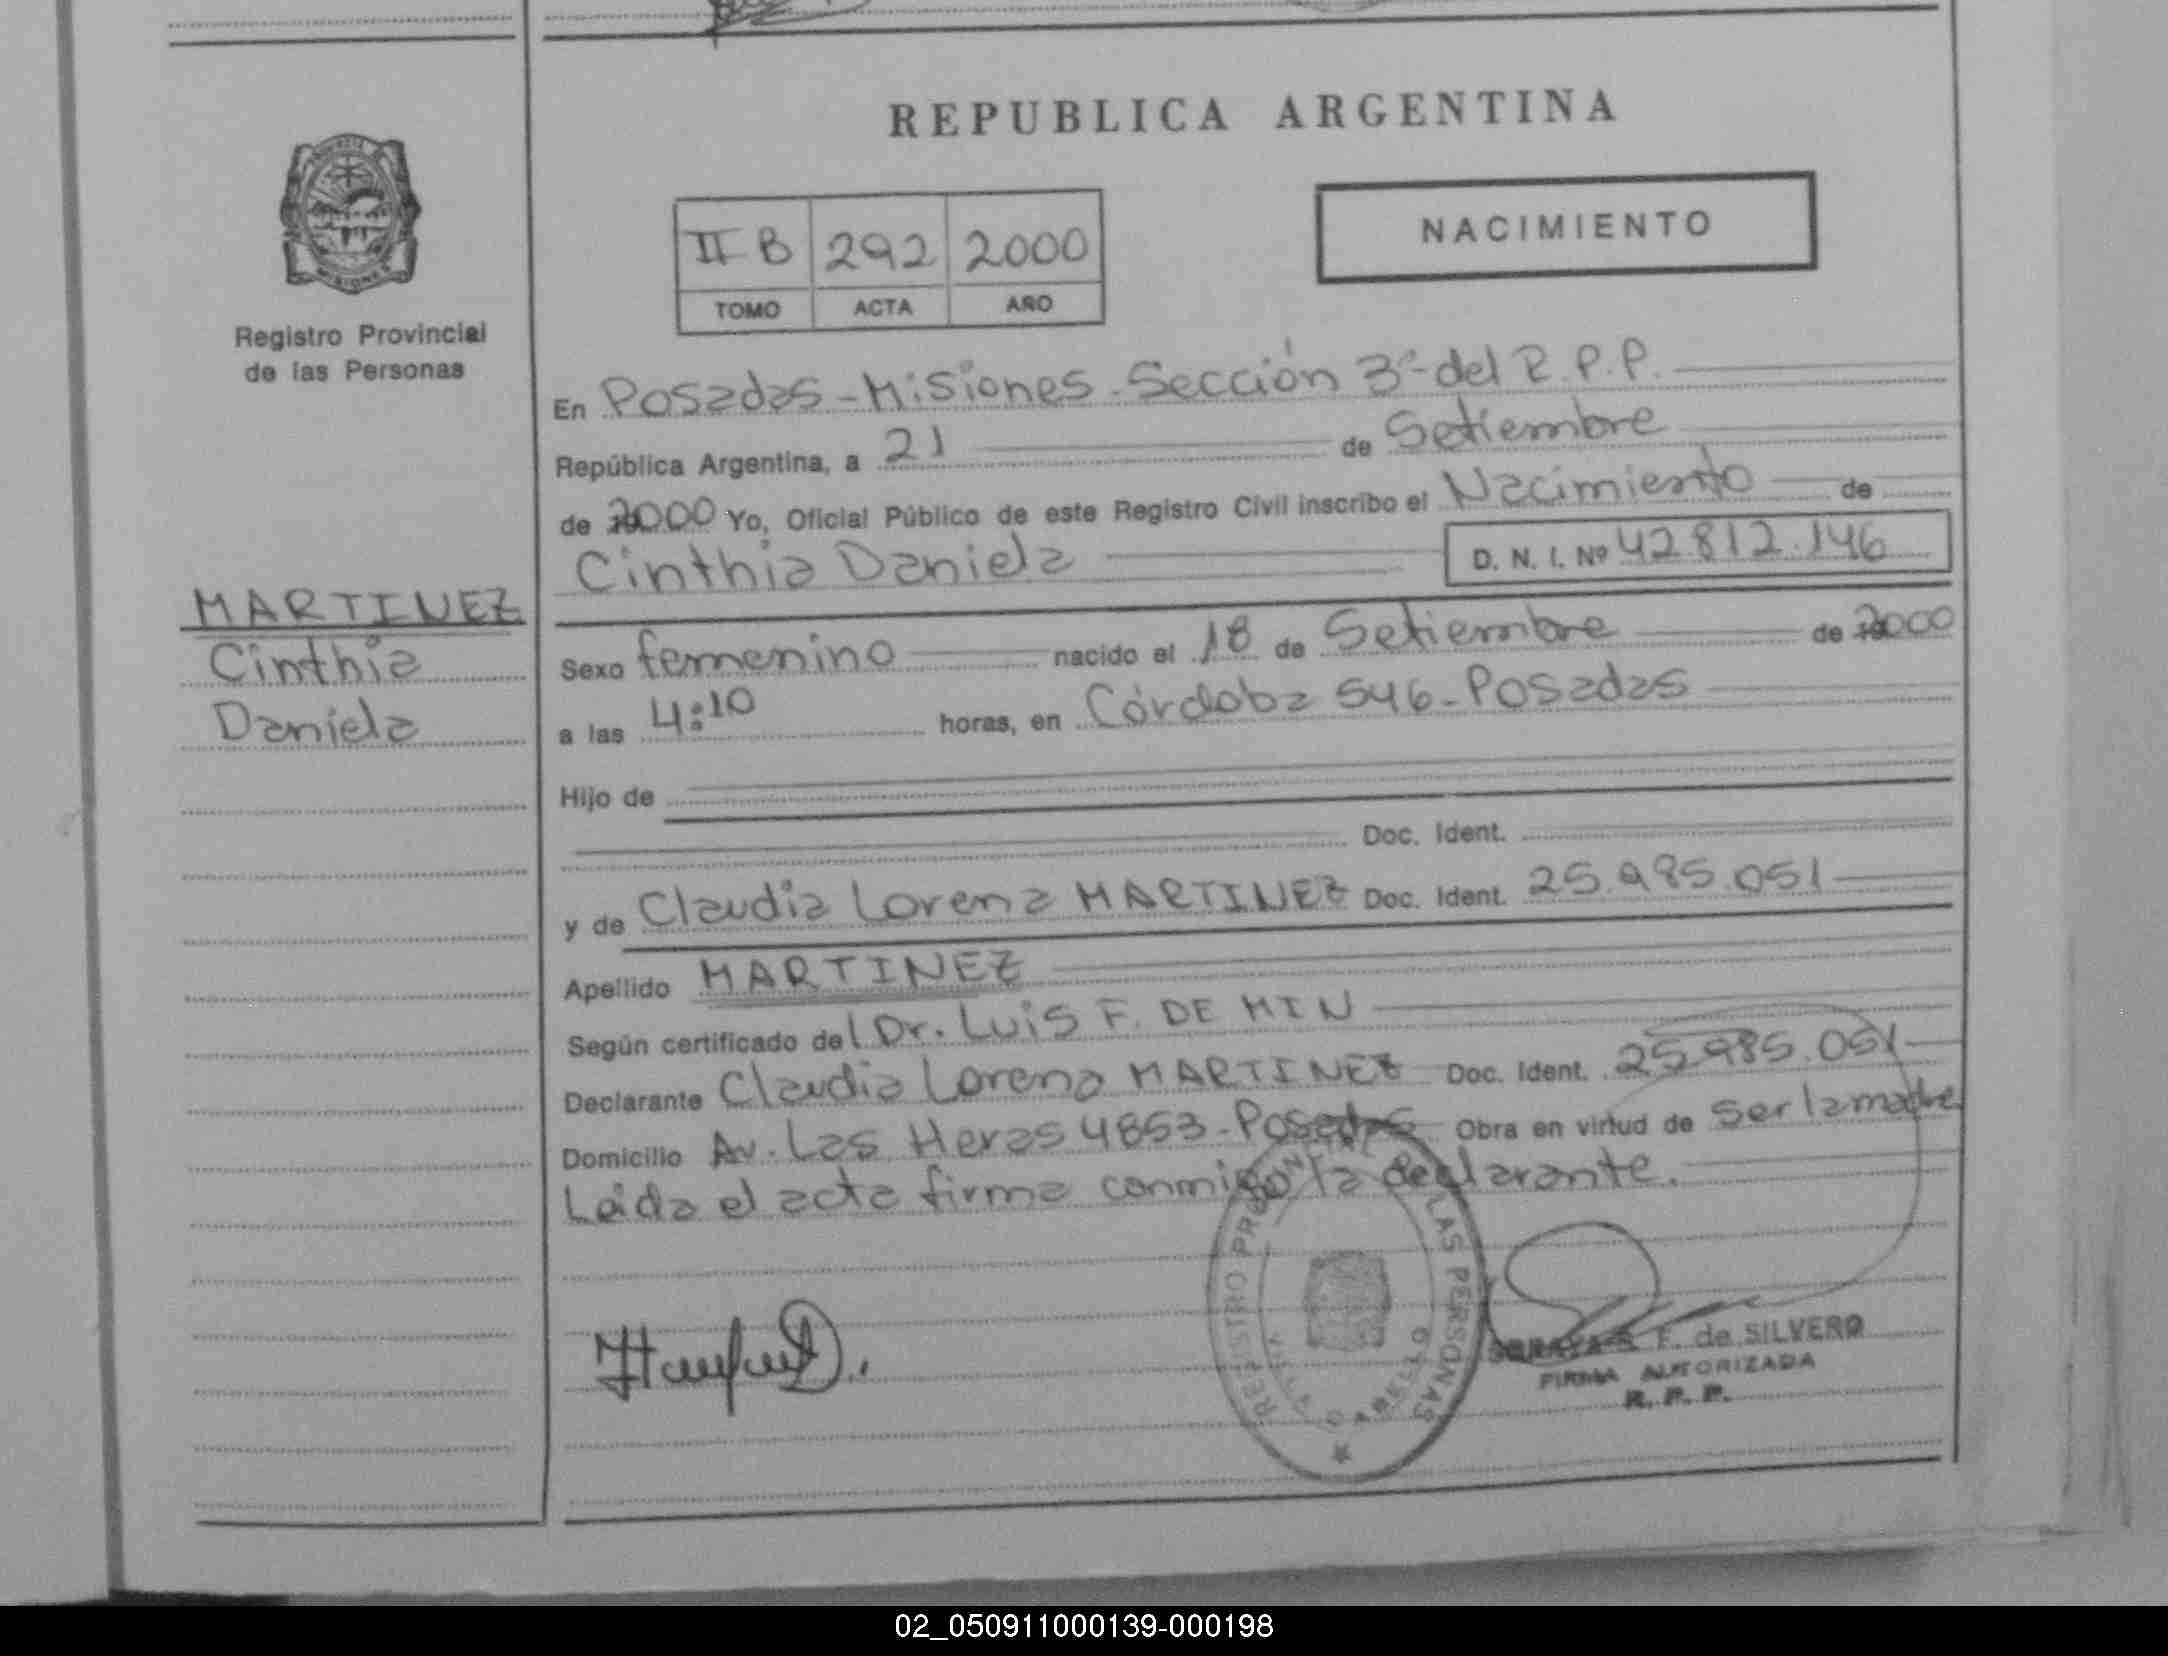 REPUBLICA ARGENTINA
NACIMIENTO
II B 292 2000
TOMO ACTA AÑO
MISIONES
Registro Provincial
de las Personas
En Posadas - Misiones - Sección 3ª del R.P.P.
República Argentina, a 21 de Setiembre
de 2000 Yo, Oficial Público de este Registro Civil inscribo el Nacimiento de
Cinthia Daniela D. N. I. Nº 42.812.146
MARTINEZ
Cinthia
Daniela
Sexo femenino nacido el 18 de Setiembre de 2000
a las 4:10 horas, en Córdoba 546 - Posadas
Hijo de
Doc. Ident.
y de Claudia Lorena MARTINEZ Doc. Ident. 25.985.051
Apellido MARTINEZ
Según certificado del Dr. Luis F. DE MIN
Declarante Claudia Lorena MARTINEZ Doc. Ident. 25.985.051
Domicilio Av. Las Heras 4853 - Posadas Obra en virtud de ser la madre
Leída el acta firma conmigo la declarante.
REGISTRO PROVINCIAL DE LAS PERSONAS
VILLA CABELLO
F. de SILVERO
FIRMA AUTORIZADA
R. P. P.
02_050911000139-000198